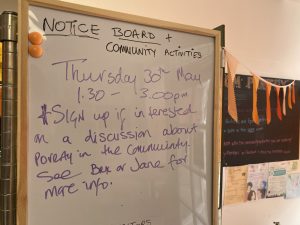 NOTICE BOARD +
COMMUNITY ACTIVITIES
Thursday 30th May
1.30 - 3.00pm
* SIGN up if interested
in a discussion about
Poverty in the Community.
See Bex or Jane for
more info.